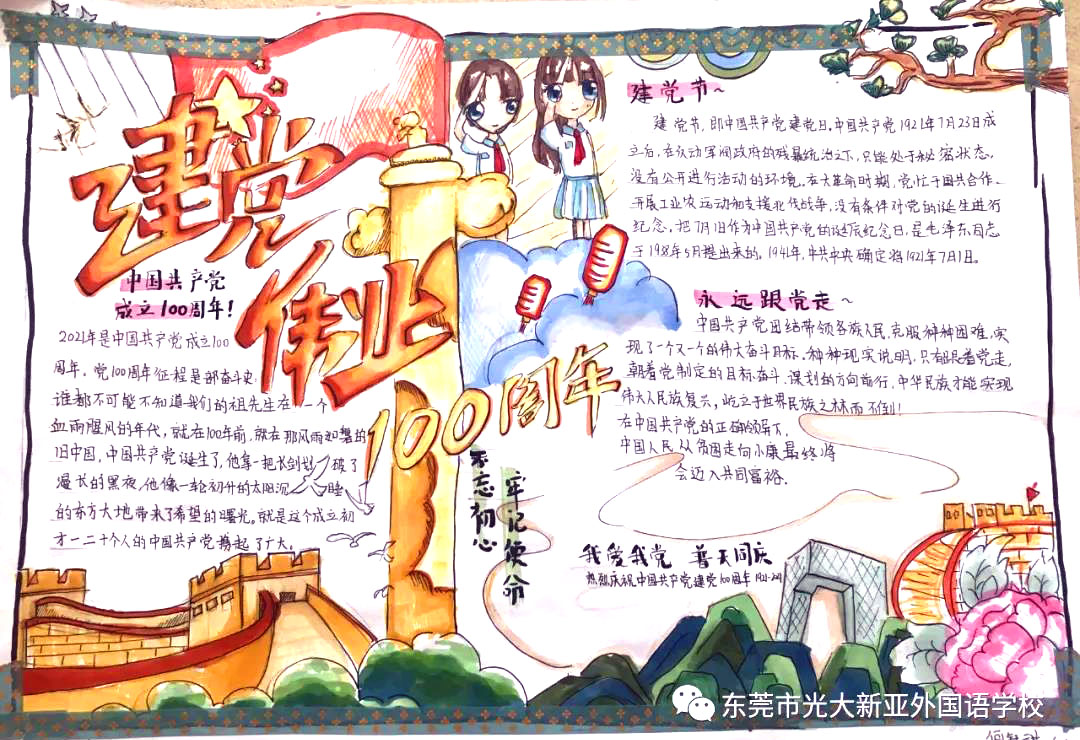 建党
伟业
100周年
中国共产党
成立100周年!
2021年是中国共产党成立100
周年。党100周年征程是部奋斗史.
谁都不可能不知道我们的祖先生在一个
血雨腥风的年代,就在100年前,就在那风雨如磐的
旧中国,中国共产党诞生了,他拿一把长剑划破了
漫长的黑夜,他像一轮初升的太阳沉睡
的东方大地带来了希望的曙光。就是这个成立初
才一二十个人的中国共产党撬起了广大。
建党节~
建党节,即中国共产党建党日,中国共产党1921年7月23日成
立后,在反动军阀政府的残暴统治之下,只能处于秘密状态,
没有公开进行活动的环境。在大革命时期,党忙于国共合作、
开展工业农运动和支援北伐战争,没有条件对党的诞生进行
纪念,把7月1日作为中国共产党的诞辰纪念日,是毛泽东同志
于1938年5月提出来的。1941年,中共中央确定将1921年7月1日。
永远跟党走~
中国共产党团结带领各族人民,克服种种困难,实
现了一个又一个的伟大奋斗目标。种种现实说明,只有跟着党走,
朝着党制定的目标奋斗。谋划的方向前行,中华民族才能实现
伟大人民族复兴,屹立于世界民族之林而不倒!
在中国共产党的正确领导下,
中国人民从贫困走向小康最终将
会迈入共同富裕.
不忘初心
牢记使命
我爱我党 普天同庆
热烈庆祝中国共产党建党100周年1921-2021
东莞市光大新亚外国语学校